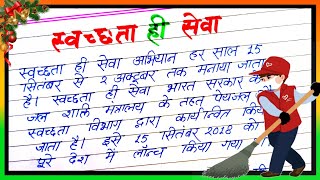 स्वच्छता ही सेवा
स्वच्छता ही सेवा अभियान हर साल 15
सितंबर से 2 अक्टूबर तक मनाया जाता
है। स्वच्छता ही सेवा भारत सरकार के
जल शक्ति मंत्रालय के तहत पेयजल
स्वच्छता विभाग द्वारा कार्यान्वित किया
जाता है। इसे 15 सितंबर 2018 को
पूरे देश में लॉन्च किया गया